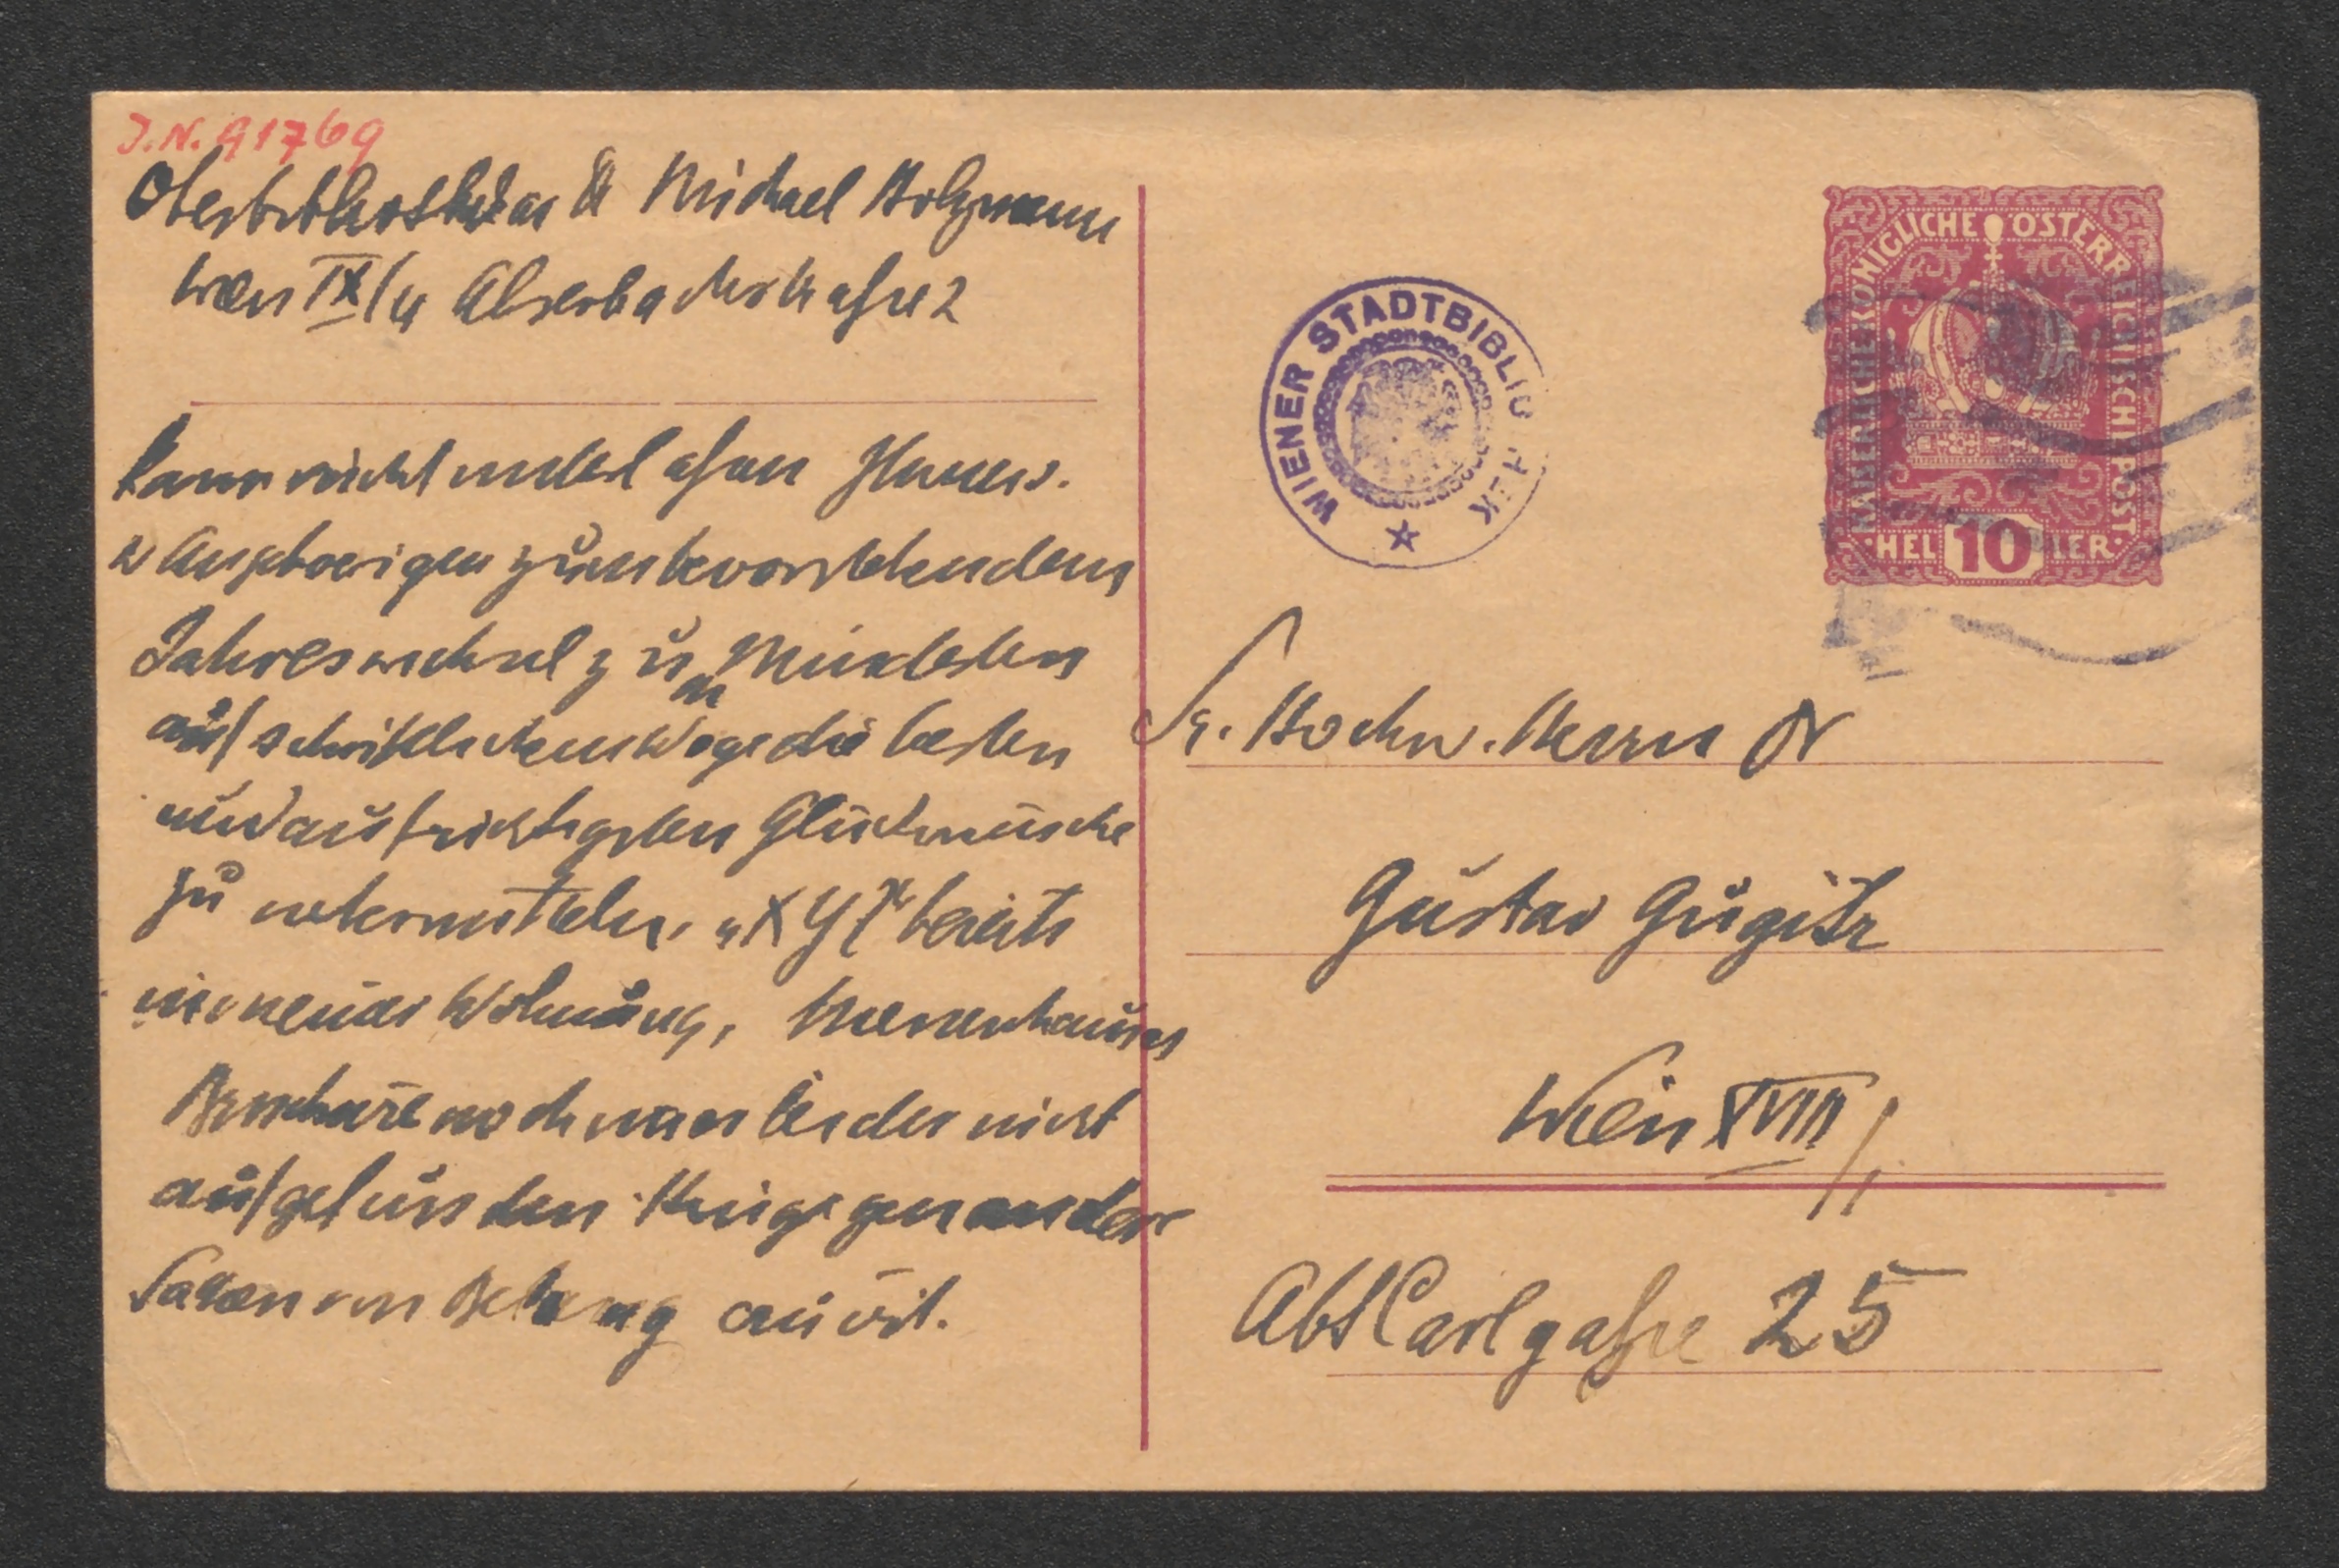 J.N. 91769
Oberbibliothekar Dr Michael Holzmann
Wien IX/4 Alserbachstraße 2
kann nicht unterlassen Ihnen u.
w Angehoerigen zum bevorstehendem
Jahreswechsel zum Mindesten
auf schriftlichem Wege die besten
und aufrichtigsten Glückwünsche
zu uebermitteln. „XYZ" bereits
in neuer Wohnung,
noch war leider nicht
aufgefunden
von Belang
WIENER STADTBIBLIOTHEK
KAISERLICHE KÖNIGLICHE ÖSTERREICHISCHE POST
HELLER 10
Sr. Hochw. Herrn Dr
Gustav Gugitz
Wien XVIII/1
Abt Carlgasse 25